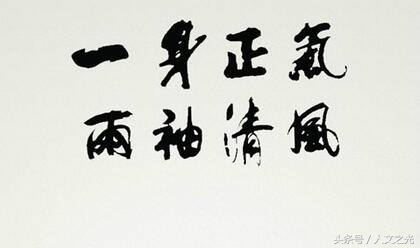 一身正氣
兩袖清風
头条号/人文之光